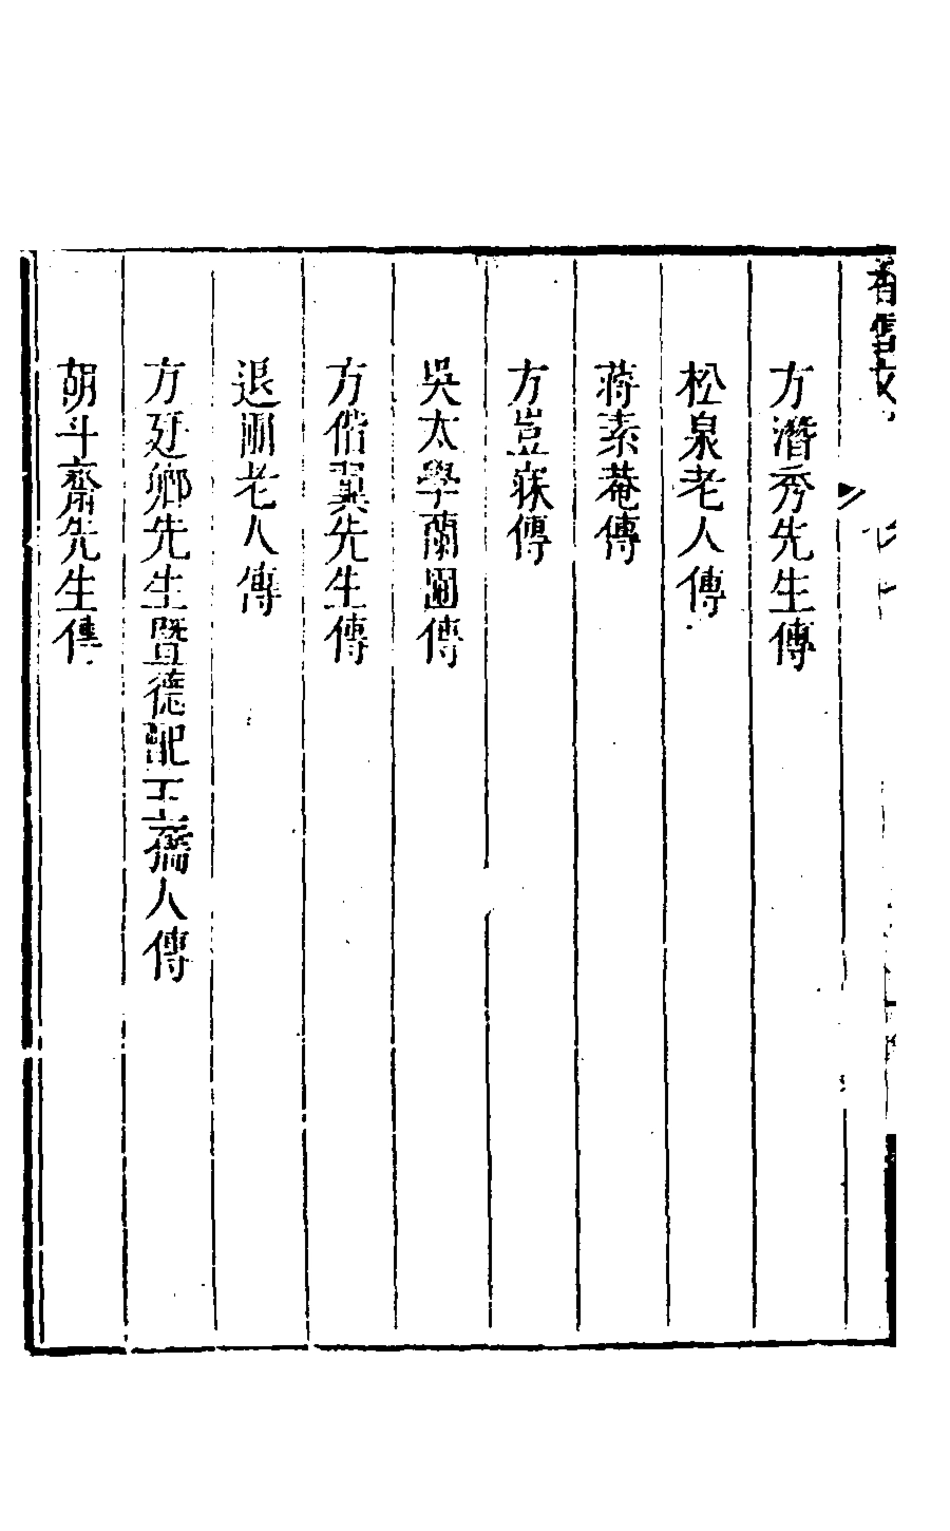 方潛秀先生傳
松泉老人傳
蔣素菴傳
方豈寐傳
吳太學蘭圃傳
方偕翼先生傳
退圃老人傳
方廷鄉先生暨德配王孺人傳
胡斗齋先生傳